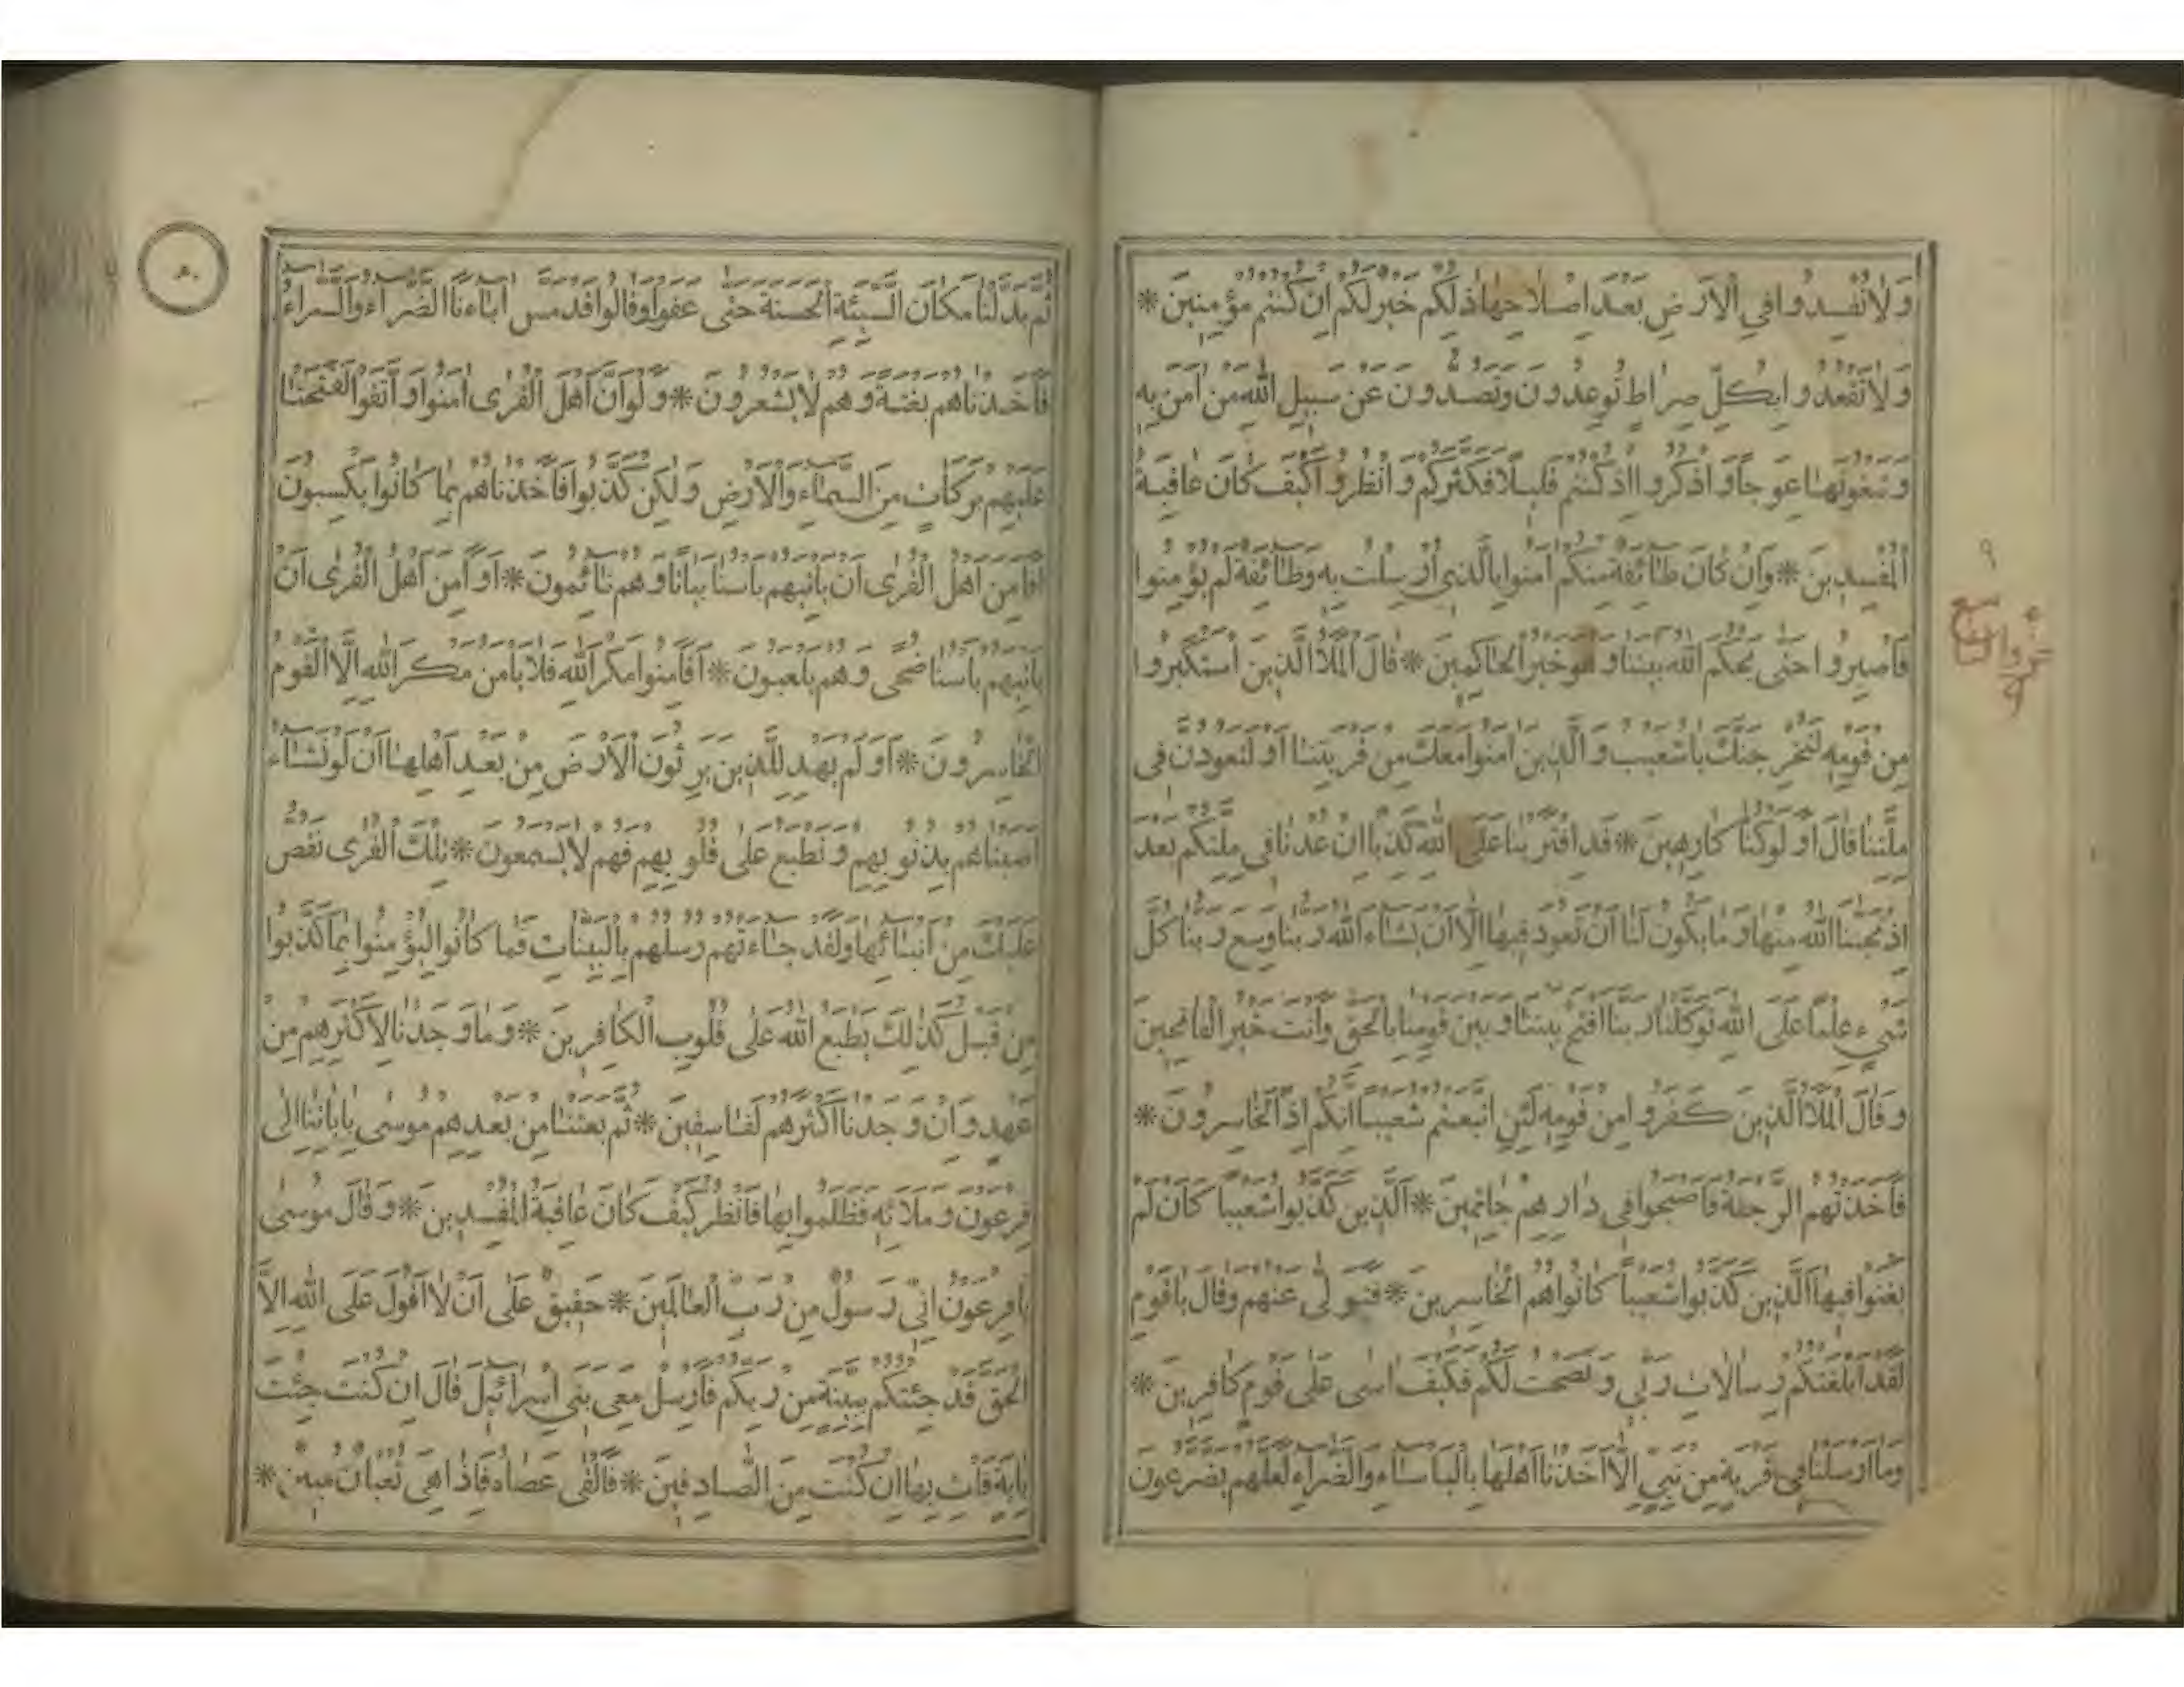 وَلَا تُفْسِدُوا فِي الْاَرْضِ بَعْدَ اِصْلَاحِهَا ذٰلِكُمْ خَيْرٌ لَكُمْ اِنْ كُنْتُمْ مُؤْمِنِينَ *
وَلَا تَقْعُدُوا بِكُلِّ صِرَاطٍ تُوعِدُونَ وَتَصُدُّونَ عَنْ سَبِيلِ اللهِ مَنْ اٰمَنَ بِهِ
وَتَبْغُونَهَا عِوَجًا وَاذْكُرُوا اِذْ كُنْتُمْ قَلِيلًا فَكَثَّرَكُمْ وَانْظُرُوا كَيْفَ كَانَ عَاقِبَةُ
الْمُفْسِدِينَ * وَاِنْ كَانَ طَائِفَةٌ مِنْكُمْ اٰمَنُوا بِالَّذِي اُرْسِلْتُ بِهِ وَطَائِفَةٌ لَمْ يُؤْمِنُوا
فَاصْبِرُوا حَتّٰى يَحْكُمَ اللهُ بَيْنَنَا وَهُوَ خَيْرُ الْحَاكِمِينَ * قَالَ الْمَلَاُ الَّذِينَ اسْتَكْبَرُوا
مِنْ قَوْمِهِ لَنُخْرِجَنَّكَ يَا شُعَيْبُ وَالَّذِينَ اٰمَنُوا مَعَكَ مِنْ قَرْيَتِنَا اَوْ لَتَعُودُنَّ فِي
مِلَّتِنَا قَالَ اَوَلَوْ كُنَّا كَارِهِينَ * قَدِ افْتَرَيْنَا عَلَى اللهِ كَذِبًا اِنْ عُدْنَا فِي مِلَّتِكُمْ بَعْدَ
اِذْ نَجّٰينَا اللهُ مِنْهَا وَمَا يَكُونُ لَنَا اَنْ نَعُودَ فِيهَا اِلَّا اَنْ يَشَاءَ اللهُ رَبُّنَا وَسِعَ رَبُّنَا كُلَّ
شَيْءٍ عِلْمًا عَلَى اللهِ تَوَكَّلْنَا رَبَّنَا افْتَحْ بَيْنَنَا وَبَيْنَ قَوْمِنَا بِالْحَقِّ وَاَنْتَ خَيْرُ الْفَاتِحِينَ
وَقَالَ الْمَلَاُ الَّذِينَ كَفَرُوا مِنْ قَوْمِهِ لَئِنِ اتَّبَعْتُمْ شُعَيْبًا اِنَّكُمْ اِذًا لَخَاسِرُونَ *
فَاَخَذَتْهُمُ الرَّجْفَةُ فَاَصْبَحُوا فِي دَارِهِمْ جَاثِمِينَ * اَلَّذِينَ كَذَّبُوا شُعَيْبًا كَاَنْ لَمْ
يَغْنَوْا فِيهَا اَلَّذِينَ كَذَّبُوا شُعَيْبًا كَانُوا هُمُ الْخَاسِرِينَ * فَتَوَلّٰى عَنْهُمْ وَقَالَ يَا قَوْمِ
لَقَدْ اَبْلَغْتُكُمْ رِسَالَاتِ رَبِّي وَنَصَحْتُ لَكُمْ فَكَيْفَ اٰسٰى عَلٰى قَوْمٍ كَافِرِينَ *
وَمَا اَرْسَلْنَا فِي قَرْيَةٍ مِنْ نَبِيٍّ اِلَّا اَخَذْنَا اَهْلَهَا بِالْبَاْسَاءِ وَالضَّرَّاءِ لَعَلَّهُمْ يَضَّرَّعُونَ
٩
جزو التاسع
٩
ثُمَّ بَدَّلْنَا مَكَانَ السَّيِّئَةِ الْحَسَنَةَ حَتّٰى عَفَوْا وَقَالُوا قَدْ مَسَّ اٰبَاءَنَا الضَّرَّاءُ وَالسَّرَّاءُ
فَاَخَذْنَاهُمْ بَغْتَةً وَهُمْ لَا يَشْعُرُونَ * وَلَوْ اَنَّ اَهْلَ الْقُرٰى اٰمَنُوا وَاتَّقَوْا لَفَتَحْنَا
عَلَيْهِمْ بَرَكَاتٍ مِنَ السَّمَاءِ وَالْاَرْضِ وَلٰكِنْ كَذَّبُوا فَاَخَذْنَاهُمْ بِمَا كَانُوا يَكْسِبُونَ
اَفَاَمِنَ اَهْلُ الْقُرٰى اَنْ يَاْتِيَهُمْ بَاْسُنَا بَيَاتًا وَهُمْ نَائِمُونَ * اَوَاَمِنَ اَهْلُ الْقُرٰى اَنْ
يَاْتِيَهُمْ بَاْسُنَا ضُحًى وَهُمْ يَلْعَبُونَ * اَفَاَمِنُوا مَكْرَ اللهِ فَلَا يَاْمَنُ مَكْرَ اللهِ اِلَّا الْقَوْمُ
الْخَاسِرُونَ * اَوَلَمْ يَهْدِ لِلَّذِينَ يَرِثُونَ الْاَرْضَ مِنْ بَعْدِ اَهْلِهَا اَنْ لَوْ نَشَاءُ
اَصَبْنَاهُمْ بِذُنُوبِهِمْ وَنَطْبَعُ عَلٰى قُلُوبِهِمْ فَهُمْ لَا يَسْمَعُونَ * تِلْكَ الْقُرٰى نَقُصُّ
عَلَيْكَ مِنْ اَنْبَائِهَا وَلَقَدْ جَاءَتْهُمْ رُسُلُهُمْ بِالْبَيِّنَاتِ فَمَا كَانُوا لِيُؤْمِنُوا بِمَا كَذَّبُوا
مِنْ قَبْلُ كَذٰلِكَ يَطْبَعُ اللهُ عَلٰى قُلُوبِ الْكَافِرِينَ * وَمَا وَجَدْنَا لِاَكْثَرِهِمْ مِنْ
عَهْدٍ وَاِنْ وَجَدْنَا اَكْثَرَهُمْ لَفَاسِقِينَ * ثُمَّ بَعَثْنَا مِنْ بَعْدِهِمْ مُوسٰى بِاٰيَاتِنَا اِلٰى
فِرْعَوْنَ وَمَلَائِهِ فَظَلَمُوا بِهَا فَانْظُرْ كَيْفَ كَانَ عَاقِبَةُ الْمُفْسِدِينَ * وَقَالَ مُوسٰى
يَا فِرْعَوْنُ اِنِّي رَسُولٌ مِنْ رَبِّ الْعَالَمِينَ * حَقِيقٌ عَلٰى اَنْ لَا اَقُولَ عَلَى اللهِ اِلَّا
الْحَقَّ قَدْ جِئْتُكُمْ بِبَيِّنَةٍ مِنْ رَبِّكُمْ فَاَرْسِلْ مَعِيَ بَنِي اِسْرَائِيلَ قَالَ اِنْ كُنْتَ جِئْتَ
بِاٰيَةٍ فَاْتِ بِهَا اِنْ كُنْتَ مِنَ الصَّادِقِينَ * فَاَلْقٰى عَصَاهُ فَاِذَا هِيَ ثُعْبَانٌ مُبِينٌ *